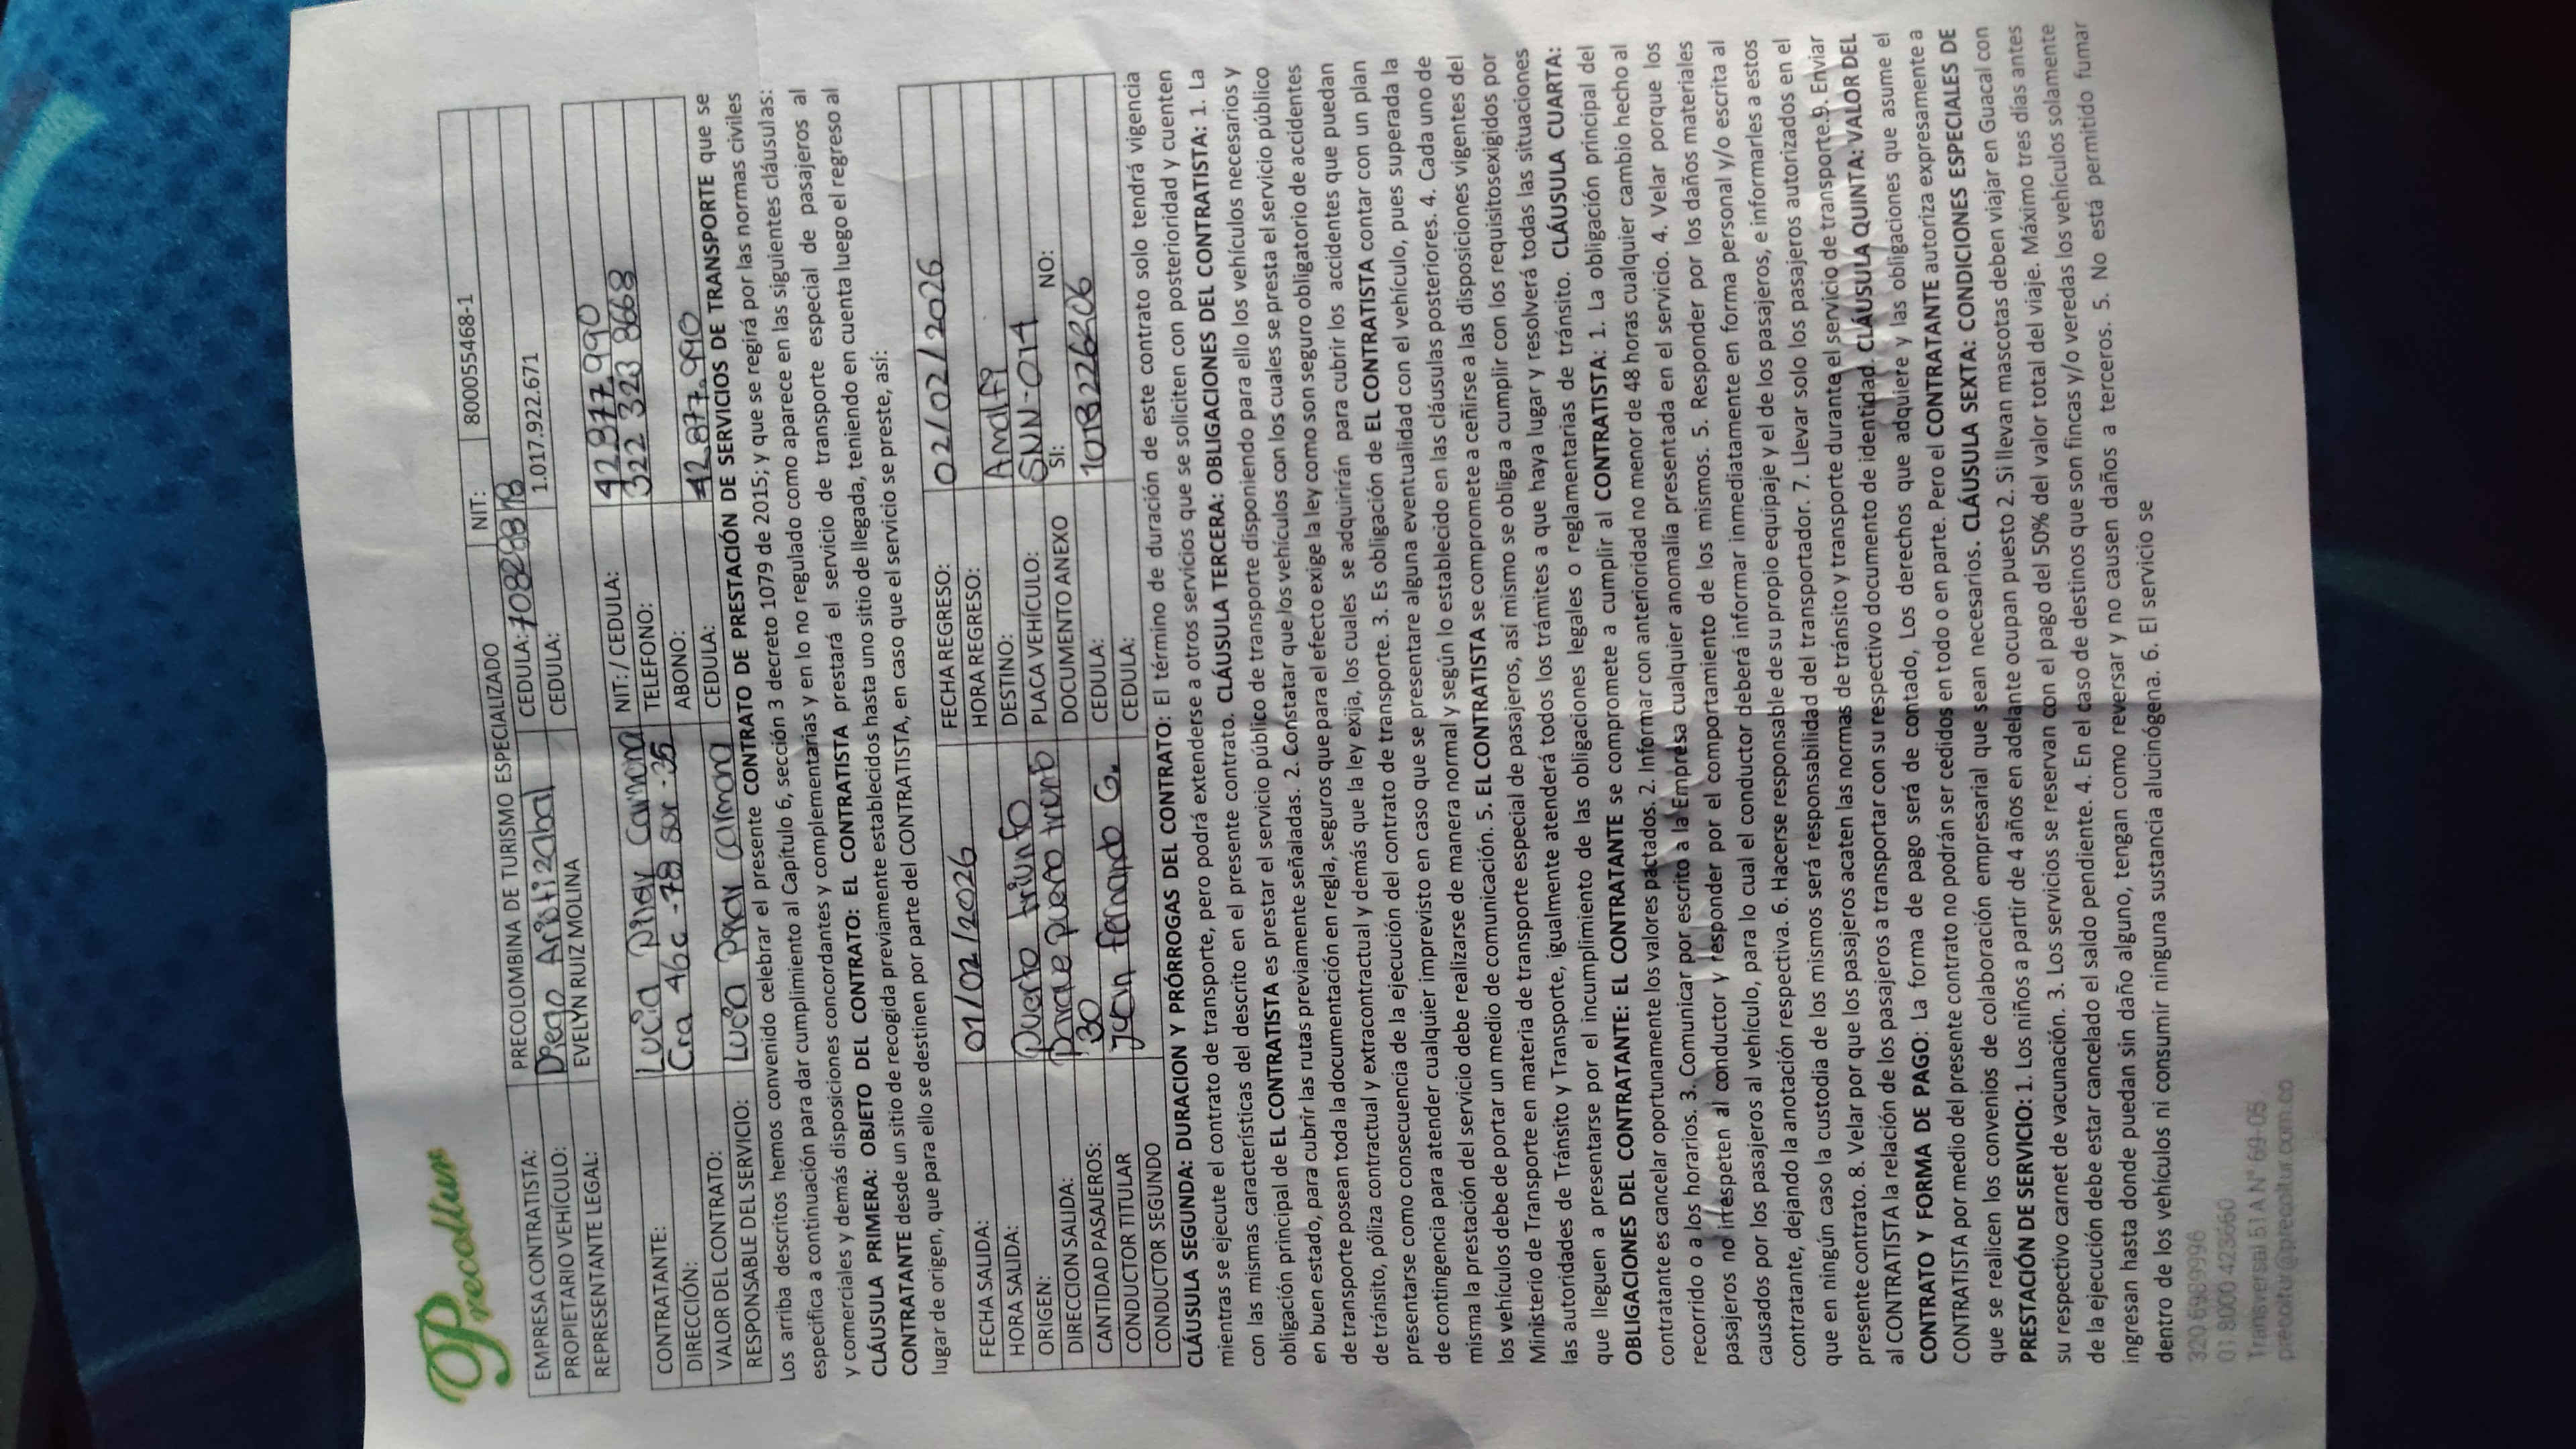 Precoltur
EMPRESA CONTRATISTA: PRECOLOMBINA DE TURISMO ESPECIALIZADO NIT: 800055468-1
PROPIETARIO VEHÍCULO: Diego Aristizabal CEDULA:
REPRESENTANTE LEGAL: EVELYN RUIZ MOLINA CEDULA: 1.017.922.671
CONTRATANTE: Lucia Pilar Carmona NIT: / CEDULA: 42.877.990
DIRECCIÓN: Cra 46c -78 sur -35 TELEFONO: 322 323 8668
VALOR DEL CONTRATO: ABONO:
RESPONSABLE DEL SERVICIO: Lucia Pilar Carmona CEDULA: 42.877.990
Los arriba descritos hemos convenido celebrar el presente CONTRATO DE PRESTACIÓN DE SERVICIOS DE TRANSPORTE que se
especifica a continuación para dar cumplimiento al Capítulo 6, sección 3 decreto 1079 de 2015; y que se regirá por las normas civiles
y comerciales y demás disposiciones concordantes y complementarias y en lo no regulado como aparece en las siguientes cláusulas:
CLÁUSULA PRIMERA: OBJETO DEL CONTRATO: EL CONTRATISTA prestará el servicio de transporte especial de pasajeros al
CONTRATANTE desde un sitio de recogida previamente establecidos hasta uno sitio de llegada, teniendo en cuenta luego el regreso al
lugar de origen, que para ello se destinen por parte del CONTRATISTA, en caso que el servicio se preste, así:
FECHA SALIDA: 01/02/2026 FECHA REGRESO: 02/02/2026
HORA SALIDA: HORA REGRESO:
ORIGEN: Puerto triunfo DESTINO: Amalfi
DIRECCION SALIDA: Parque puerto triunfo PLACA VEHÍCULO: SNN-014
CANTIDAD PASAJEROS: 30 DOCUMENTO ANEXO SI: NO:
CONDUCTOR TITULAR Juan Fernando G. CEDULA: 1018226206
CONDUCTOR SEGUNDO CEDULA:
CLÁUSULA SEGUNDA: DURACION Y PRÓRROGAS DEL CONTRATO: El término de duración de este contrato solo tendrá vigencia
mientras se ejecute el contrato de transporte, pero podrá extenderse a otros servicios que se soliciten con posterioridad y cuenten
con las mismas características del descrito en el presente contrato. CLÁUSULA TERCERA: OBLIGACIONES DEL CONTRATISTA: 1. La
obligación principal de EL CONTRATISTA es prestar el servicio público de transporte disponiendo para ello los vehículos necesarios y
en buen estado, para cubrir las rutas previamente señaladas. 2. Constatar que los vehículos con los cuales se presta el servicio público
de transporte posean toda la documentación en regla, seguros que para el efecto exige la ley como son seguro obligatorio de accidentes
de tránsito, póliza contractual y extracontractual y demás que la ley exija, los cuales se adquirirán para cubrir los accidentes que puedan
presentarse como consecuencia de la ejecución del contrato de transporte. 3. Es obligación de EL CONTRATISTA contar con un plan
de contingencia para atender cualquier imprevisto en caso que se presentare alguna eventualidad con el vehículo, pues superada la
misma la prestación del servicio debe realizarse de manera normal y según lo establecido en las cláusulas posteriores. 4. Cada uno de
los vehículos debe de portar un medio de comunicación. 5. EL CONTRATISTA se compromete a ceñirse a las disposiciones vigentes del
Ministerio de Transporte en materia de transporte especial de pasajeros, así mismo se obliga a cumplir con los requisitosexigidos por
las autoridades de Tránsito y Transporte, igualmente atenderá todos los trámites a que haya lugar y resolverá todas las situaciones
que lleguen a presentarse por el incumplimiento de las obligaciones legales o reglamentarias de tránsito. CLÁUSULA CUARTA:
OBLIGACIONES DEL CONTRATANTE: EL CONTRATANTE se compromete a cumplir al CONTRATISTA: 1. La obligación principal del
contratante es cancelar oportunamente los valores pactados. 2. Informar con anterioridad no menor de 48 horas cualquier cambio hecho al
recorrido o a los horarios. 3. Comunicar por escrito a la Empresa cualquier anomalía presentada en el servicio. 4. Velar porque los
pasajeros no irrespeten al conductor y responder por el comportamiento de los mismos. 5. Responder por los daños materiales
causados por los pasajeros al vehículo, para lo cual el conductor deberá informar inmediatamente en forma personal y/o escrita al
contratante, dejando la anotación respectiva. 6. Hacerse responsable de su propio equipaje y el de los pasajeros, e informarles a estos
que en ningún caso la custodia de los mismos será responsabilidad del transportador. 7. Llevar solo los pasajeros autorizados en el
presente contrato. 8. Velar por que los pasajeros acaten las normas de tránsito y transporte durante el servicio de transporte.9. Enviar
al CONTRATISTA la relación de los pasajeros a transportar con su respectivo documento de identidad. CLÁUSULA QUINTA: VALOR DEL
CONTRATO Y FORMA DE PAGO: La forma de pago será de contado, Los derechos que adquiere y las obligaciones que asume el
CONTRATISTA por medio del presente contrato no podrán ser cedidos en todo o en parte. Pero el CONTRATANTE autoriza expresamente a
que se realicen los convenios de colaboración empresarial que sean necesarios. CLÁUSULA SEXTA: CONDICIONES ESPECIALES DE
PRESTACIÓN DE SERVICIO: 1. Los niños a partir de 4 años en adelante ocupan puesto 2. Si llevan mascotas deben viajar en Guacal con
su respectivo carnet de vacunación. 3. Los servicios se reservan con el pago del 50% del valor total del viaje. Máximo tres días antes
de la ejecución debe estar cancelado el saldo pendiente. 4. En el caso de destinos que son fincas y/o veredas los vehículos solamente
ingresan hasta donde puedan sin daño alguno, tengan como reversar y no causen daños a terceros. 5. No está permitido fumar
dentro de los vehículos ni consumir ninguna sustancia alucinógena. 6. El servicio se
320 6989996
01 8000 423660
Transversal 51 A N° 69-05
precoltur@precoltur.com.co